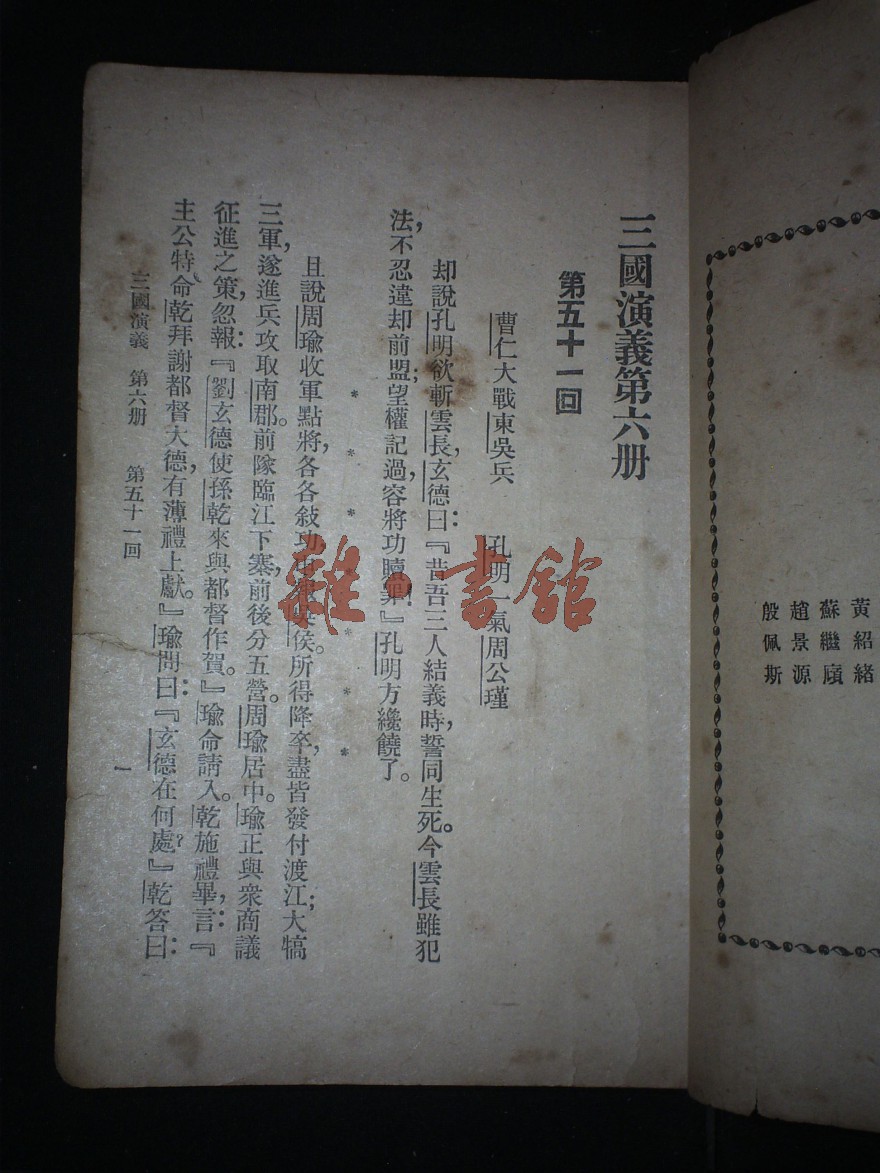 黃紹緒
蘇繼廎
趙景源
殷佩斯
三國演義第六册
第五十一回
曹仁大戰東吳兵 孔明一氣周公瑾
却說孔明欲斬雲長,玄德曰:『昔吾三人結義時,誓同生死。今雲長雖犯
法,不忍違却前盟;望權記過,容將功贖罪。』孔明方纔饒了。
* * * * * * *
且說周瑜收軍點將,各各敍功,申報吳侯。所得降卒,盡皆發付渡江;大犒
三軍,遂進兵攻取南郡。前隊臨江下寨,前後分五營。周瑜居中。瑜正與衆商議
征進之策,忽報:『劉玄德使孫乾來與都督作賀。』瑜命請入。乾施禮畢,言:『
主公特命乾拜謝都督大德,有薄禮上獻。』瑜問曰:『玄德在何處?』乾答曰:
三國演義 第六册 第五十一回 一
雜·書館